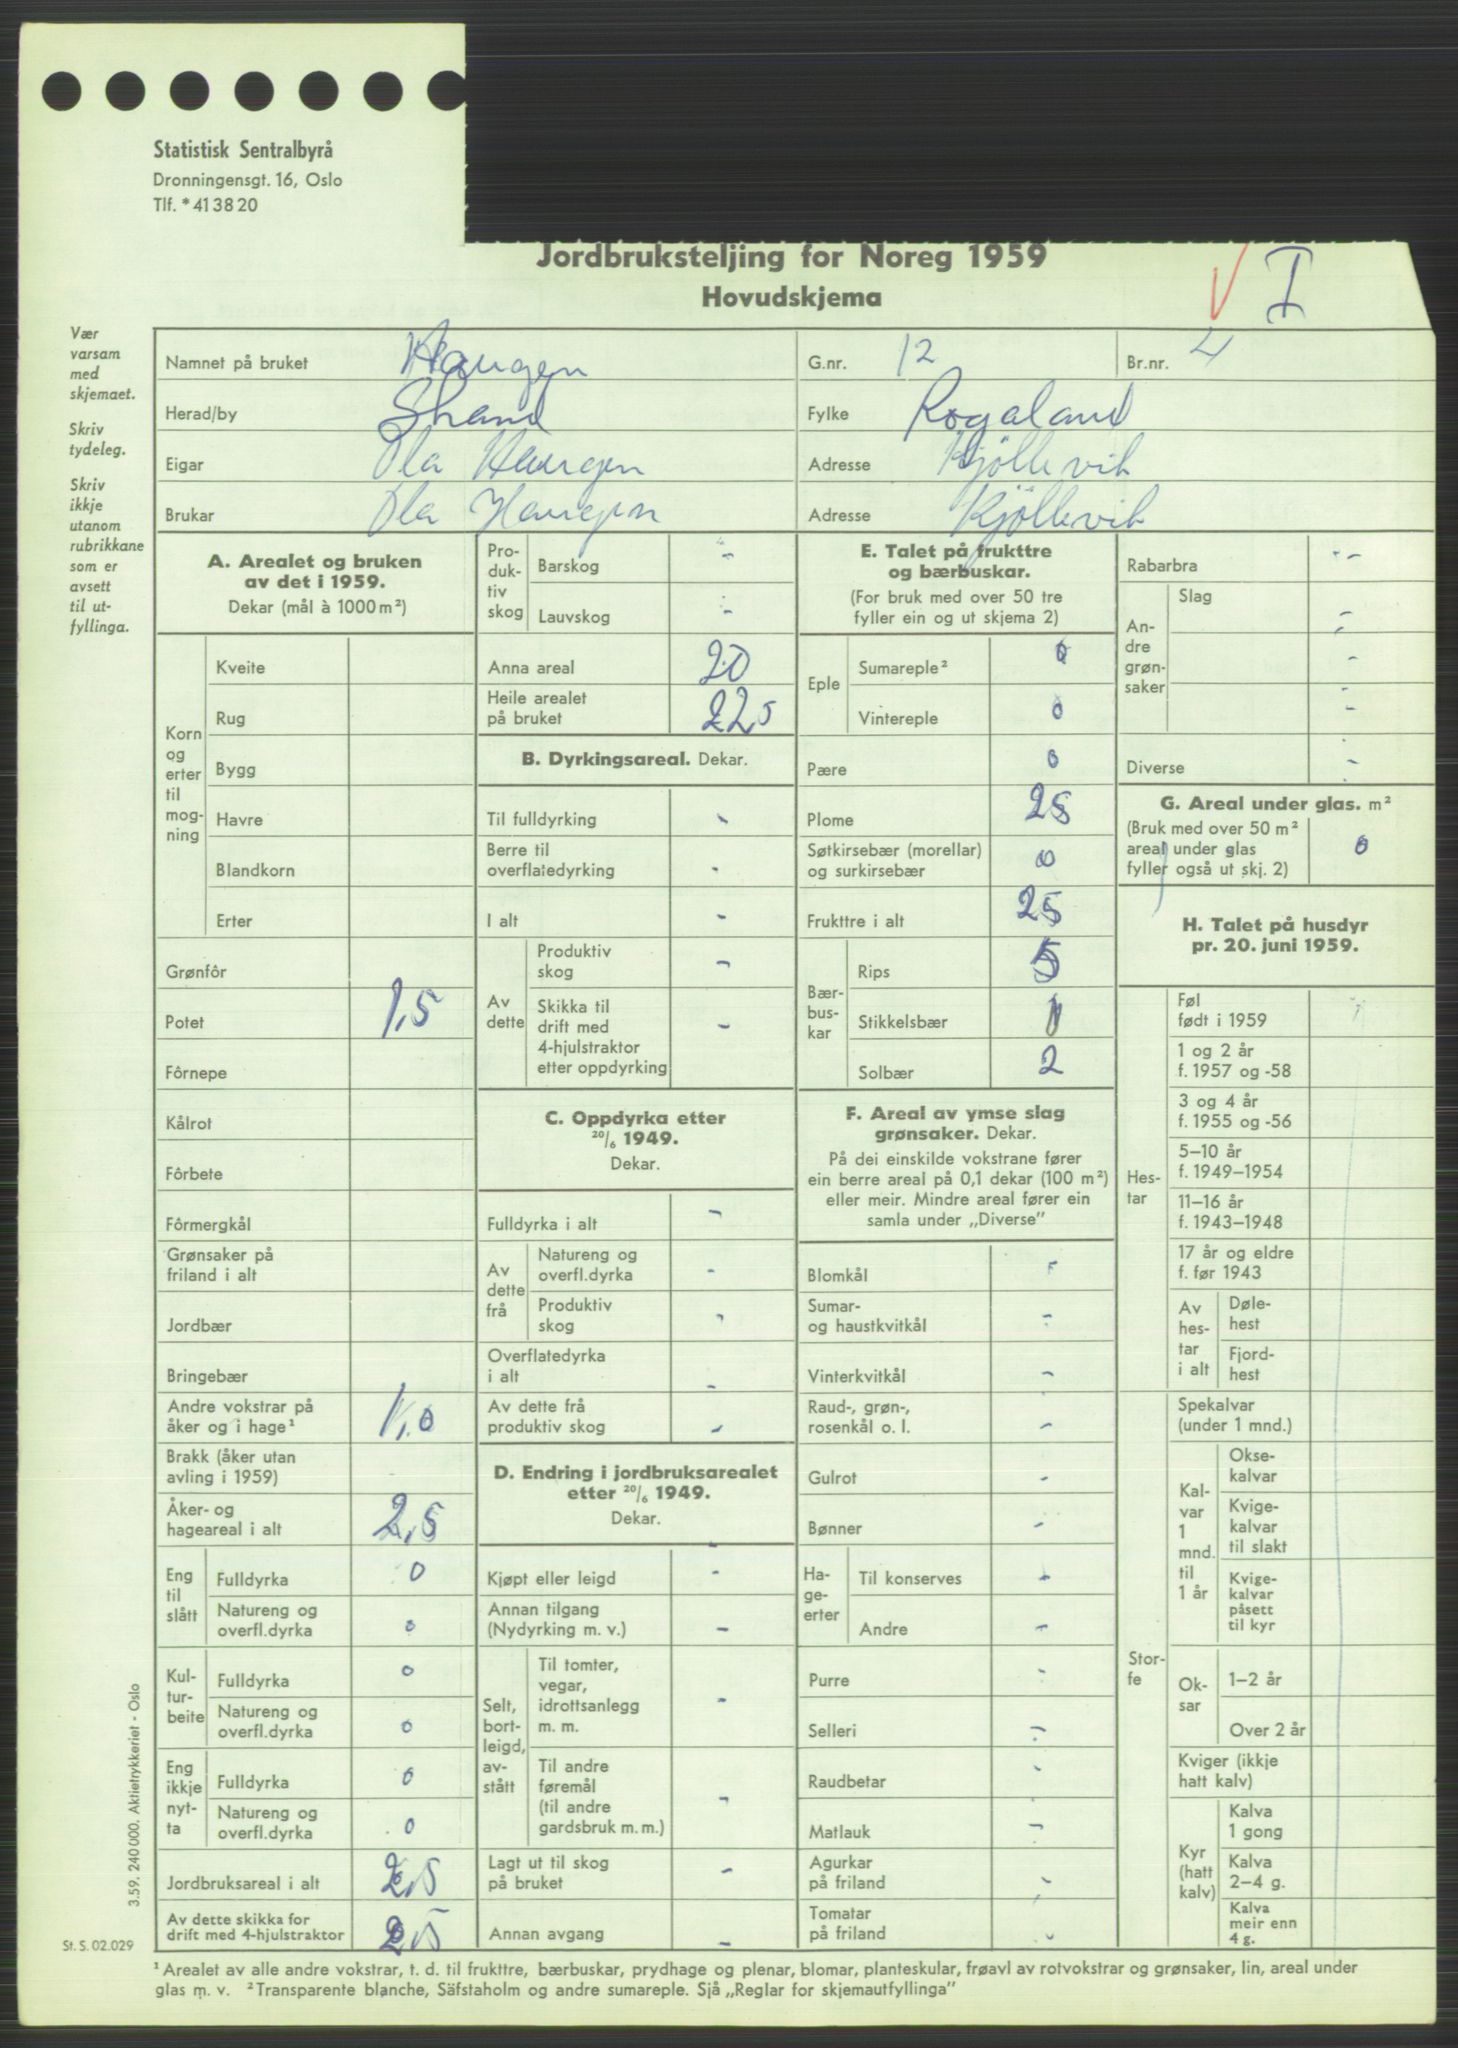 Statistisk Sentralbyrå
Dronningensgt. 16, Oslo
Tlf. * 41 38 20
Jordbruksteljing for Noreg 1959
Hovudskjema
I
Vær
varsam
med
skjemaet.
Skriv
tydeleg.
Skriv
ikkje
utanom
rubrikkane
som er
avsett
til ut-
fyllinga.
Namnet på bruket Haugen G.nr. 12 Br.nr. 4
Herad/by Strand Fylke Rogaland
Eigar Ola Haugen Adresse Kjöllevik
Brukar Ola Haugen Adresse Kjöllevik
A. Arealet og bruken
av det i 1959.
Dekar (mål à 1000 m²)
Korn
og
erter
til
mog-
ning
Kveite
Rug
Bygg
Havre
Blandkorn
Erter
Grønfôr
Potet 1,5
Fôrnepe
Kålrot
Fôrbete
Fôrmergkål
Grønsaker på
friland i alt
Jordbær
Bringebær
Andre vokstrar på
åker og i hage¹ 1,0
Brakk (åker utan
avling i 1959)
Åker- og
hageareal i alt 2,5
Eng
til
slått
Fulldyrka 0
Natureng og
overfl.dyrka 0
Kul-
tur-
beite
Fulldyrka 0
Natureng og
overfl.dyrka 0
Eng
ikkje
nyt-
ta
Fulldyrka 0
Natureng og
overfl.dyrka 0
Jordbruksareal i alt 2,5
Av dette skikka for
drift med 4-hjulstraktor 2,5
Pro-
duk-
tiv
skog
Barskog -
Lauvskog -
Anna areal 20
Heile arealet
på bruket 22,5
B. Dyrkingsareal. Dekar.
Til fulldyrking -
Berre til
overflatedyrking -
I alt -
Av
dette
Produktiv
skog -
Skikka til
drift med
4-hjulstraktor
etter oppdyrking -
C. Oppdyrka etter
20/6 1949.
Dekar.
Fulldyrka i alt -
Av
dette
frå
Natureng og
overfl.dyrka -
Produktiv
skog -
Overflatedyrka
i alt -
Av dette frå
produktiv skog -
D. Endring i jordbruksarealet
etter 20/6 1949.
Dekar.
Kjøpt eller leigd -
Annan tilgang
(Nydyrking m. v.) -
Selt,
bort-
leigd,
av-
stått
Til tomter,
vegar,
idrottsanlegg
m. m. -
Til andre
føremål
(til andre
gardsbruk m. m.) -
Lagt ut til skog
på bruket -
Annan avgang -
E. Talet på frukttre
og bærbuskar.
(For bruk med over 50 tre
fyller ein og ut skjema 2)
Eple
Sumareple² 0
Vintereple 0
Pære 0
Plome 25
Søtkirsebær (morellar)
og surkirsebær 0
Frukttre i alt 25
Bær-
bus-
kar
Rips 5
Stikkelsbær 1
Solbær 2
F. Areal av ymse slag
grønsaker. Dekar.
På dei einskilde vokstrane fører
ein berre areal på 0,1 dekar (100 m²)
eller meir. Mindre areal fører ein
samla under „Diverse”
Blomkål -
Sumar-
og haustkvitkål -
Vinterkvitkål -
Raud-, grøn-,
rosenkål o. l. -
Gulrot -
Bønner -
Ha-
ge-
erter
Til konserves -
Andre -
Purre -
Selleri -
Raudbetar -
Matlauk -
Agurkar
på friland -
Tomatar
på friland -
Rabarbra -
An-
dre
grøn-
saker
Slag
-
-
-
Diverse -
G. Areal under glas. m²
(Bruk med over 50 m²
areal under glas
fyller også ut skj. 2) 0
H. Talet på husdyr
pr. 20. juni 1959.
Hes-
tar
Føl
født i 1959
1 og 2 år
f. 1957 og -58
3 og 4 år
f. 1955 og -56
5–10 år
f. 1949–1954
11–16 år
f. 1943–1948
17 år og eldre
f. før 1943
Av
hes-
tar
i alt
Døle-
hest
Fjord-
hest
Stor-
fe
Spekalvar
(under 1 mnd.)
Kal-
var
1
mnd.
til
1 år
Okse-
kalvar
Kvige-
kalvar
til slakt
Kvige-
kalvar
påsett
til kyr
Ok-
sar
1–2 år
Over 2 år
Kviger (ikkje
hatt kalv)
Kyr
(hatt
kalv)
Kalva
1 gong
Kalva
2–4 g.
Kalva
meir enn
4 g.
3.59. 240 000. Aktietrykkeriet - Oslo
St. S. 02.029
¹ Arealet av alle andre vokstrar, t. d. til frukttre, bærbuskar, prydhage og plenar, blomar, planteskular, frøavl av rotvokstrar og grønsaker, lin, areal under
glas m. v. ² Transparente blanche, Säfstaholm og andre sumareple. Sjå „Reglar for skjemautfyllinga”